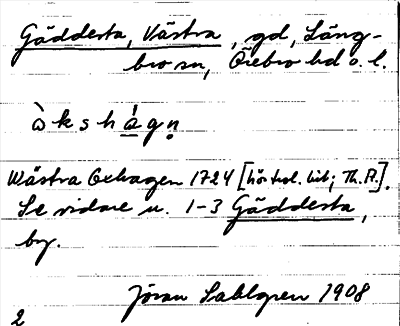 Gäddesta, Västra, gd, Läng-
bro sn, Örebro hd o. l.
àkshágṇ
Wästra Oxhagen 1724 [hör t. bib; Th. R.].
Se vidare u. 1-3 Gäddesta,
by.
Jöran Sahlgren 1908
2